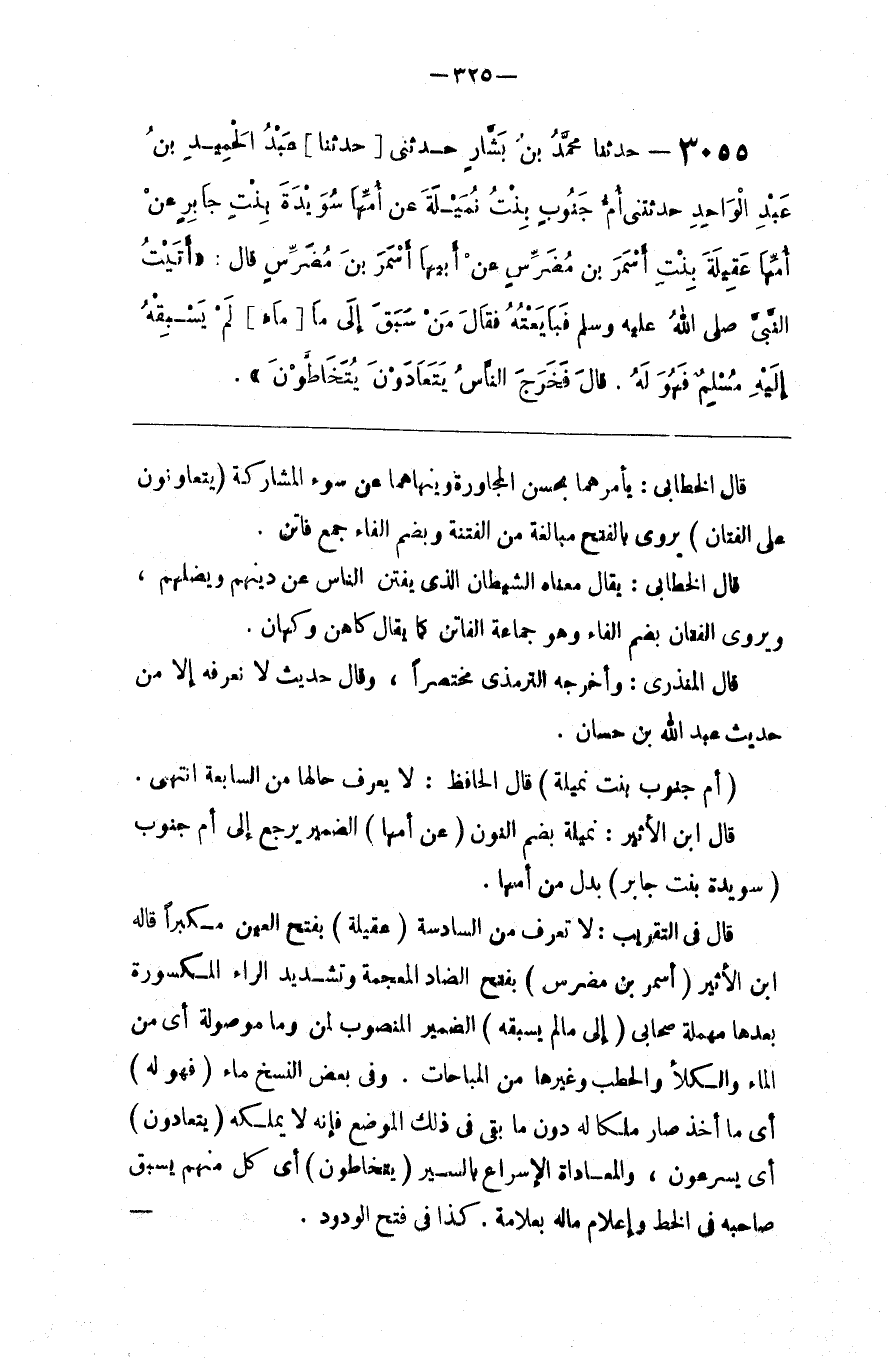 —٣٢٥—
٣٠٥٥ — حدثنا محمَّدُ بنُ بَشَّارٍ حـدثنى [ حدثنا ] عَبْدُ الْحَمِيـدِ بنُ
عَبْدِ الْوَاحِدِ حدثتنى أُمُّ جَنُوبٍ بِنْتُ نُمَيْـلَةَ عن أُمِّهَا سُوَيْدَةَ بِنْتِ جَابِرٍ عنْ
أُمِّهَا عَقِيلَةَ بِنْتِ أَسْمَرَ بن مُضَرِّسٍ عنْ أبِيهَا أَسْمَرَ بنَ مُضَرِّسٍ قال : « أَتَيْتُ
النَّبِىَّ صلى اللهُ عليه وسلم فَبَايَعْتُهُ فقَالَ مَنْ سَبَقَ إلَى مَا [ مَاء ] لَمْ يَسْـبِقْهُ
إلَيْهِ مُسْلِمٌ فَهُوَ لَهُ . قالَ فَخَرَجَ النَّاسُ يَتَعَادَوْنَ يَتَخَاطَّوْنَ » .
قال الخطابى : يأمرهما بحسن المجاورة وينهاهما عن سوء المشاركة (يتعاونون
على الفتان ) يروى بالفتح مبالغة من الفتنة وبضم الفاء جمع فاتن .
قال الخطابى : يقال معناه الشيطان الذى يفتن الناس عن دينهم ويضلهم ،
ويروى الفتان بضم الفاء وهو جماعة الفاتن كما يقال كاهن وكهان .
قال المنذرى : وأخرجه الترمذى مختصراً ، وقال حديث لا نعرفه إلا من
حديث عبد الله بن حسان .
( أم جنوب بنت نميلة ) قال الحافظ : لا يعرف حالها من السابعة انتهى .
قال ابن الأثير : نميلة بضم النون ( عن أمها ) الضمير يرجع إلى أم جنوب
( سويدة بنت جابر ) بدل من أمها .
قال فى التقريب : لا تعرف من السادسة ( عقيلة ) بفتح العين مـكبراً قاله
ابن الأثير ( أسمر بن مضرس ) بفتح الضاد المعجمة وتشـديد الراء المـكسورة
بعدها مهملة صحابى ( إلى مالم يسبقه ) الضمير المنصوب لمن وما موصولة أى من
الماء والـكلأ والحطب وغيرها من المباحات . وفى بعض النسخ ماء ( فهو له )
أى ما أخذ صار ملـكا له دون ما بقى فى ذلك الموضع فإنه لا يملـكه ( يتعادون )
أى يسرعون ، والمعـاداة الإسراع بالسـير ( يتخاطون ) أى كل منهم يسبق
صاحبه فى الخط وإعلام ماله بعلامة . كذا فى فتح الودود . —